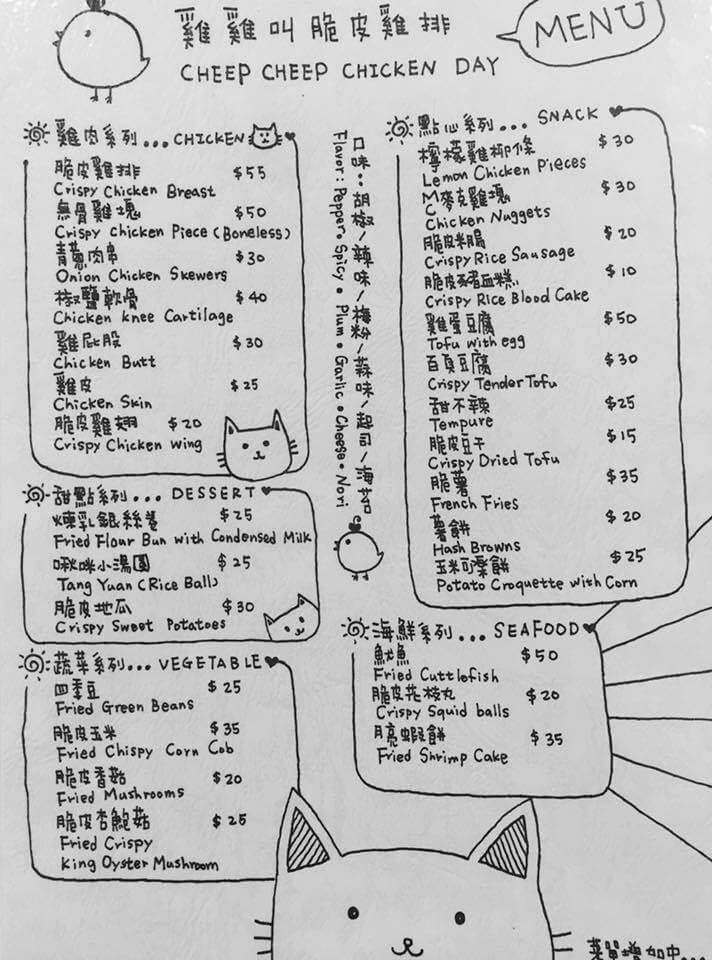 雞雞叫脆皮雞排
MENU
CHEEP CHEEP CHICKEN DAY
雞肉系列... CHICKEN
脆皮雞排 $55
Crispy Chicken Breast
無骨雞塊 $50
Crispy chicken Piece (Boneless)
青蔥肉串 $30
Onion Chicken Skewers
椒鹽軟骨 $40
Chicken knee Cartilage
雞屁股 $30
Chicken Butt
雞皮 $25
Chicken Skin
脆皮雞翅 $20
Crispy Chicken Wing
甜點系列... DESSERT
煉乳銀絲卷 $25
Fried Flour Bun with Condensed Milk
啾咪小湯圓 $25
Tang Yuan (Rice Ball)
脆皮地瓜 $30
Crispy Sweet Potatoes
蔬菜系列... VEGETABLE
四季豆 $25
Fried Green Beans
脆皮玉米 $35
Fried Chispy Corn Cob
脆皮香菇 $20
Fried Mushrooms
脆皮杏鮑菇 $25
Fried Crispy
King Oyster Mushroom
口味:胡椒/辣味/梅粉/蒜味/起司/海苔
Flavor: Pepper • Spicy • Plum • Garlic • Cheese • Nori
點心系列... SNACK
檸檬雞柳條 $30
Lemon Chicken Pieces
M麥克雞塊 $30
C
Chicken Nuggets
脆皮米腸 $20
Crispy Rice Sausage
脆皮豬血糕 $10
Crispy Rice Blood Cake
雞蛋豆腐 $50
Tofu with egg
百頁豆腐 $30
Crispy Tender Tofu
甜不辣 $25
Tempure
脆皮豆干 $15
Crispy Dried Tofu
脆薯 $35
French Fries
薯餅 $20
Hash Browns
玉米可樂餅 $25
Potato Croquette with Corn
海鮮系列... SEAFOOD
魷魚 $50
Fried Cuttlefish
脆皮花枝丸 $20
Crispy Squid balls
月亮蝦餅 $35
Fried Shrimp Cake
菜單增加中...